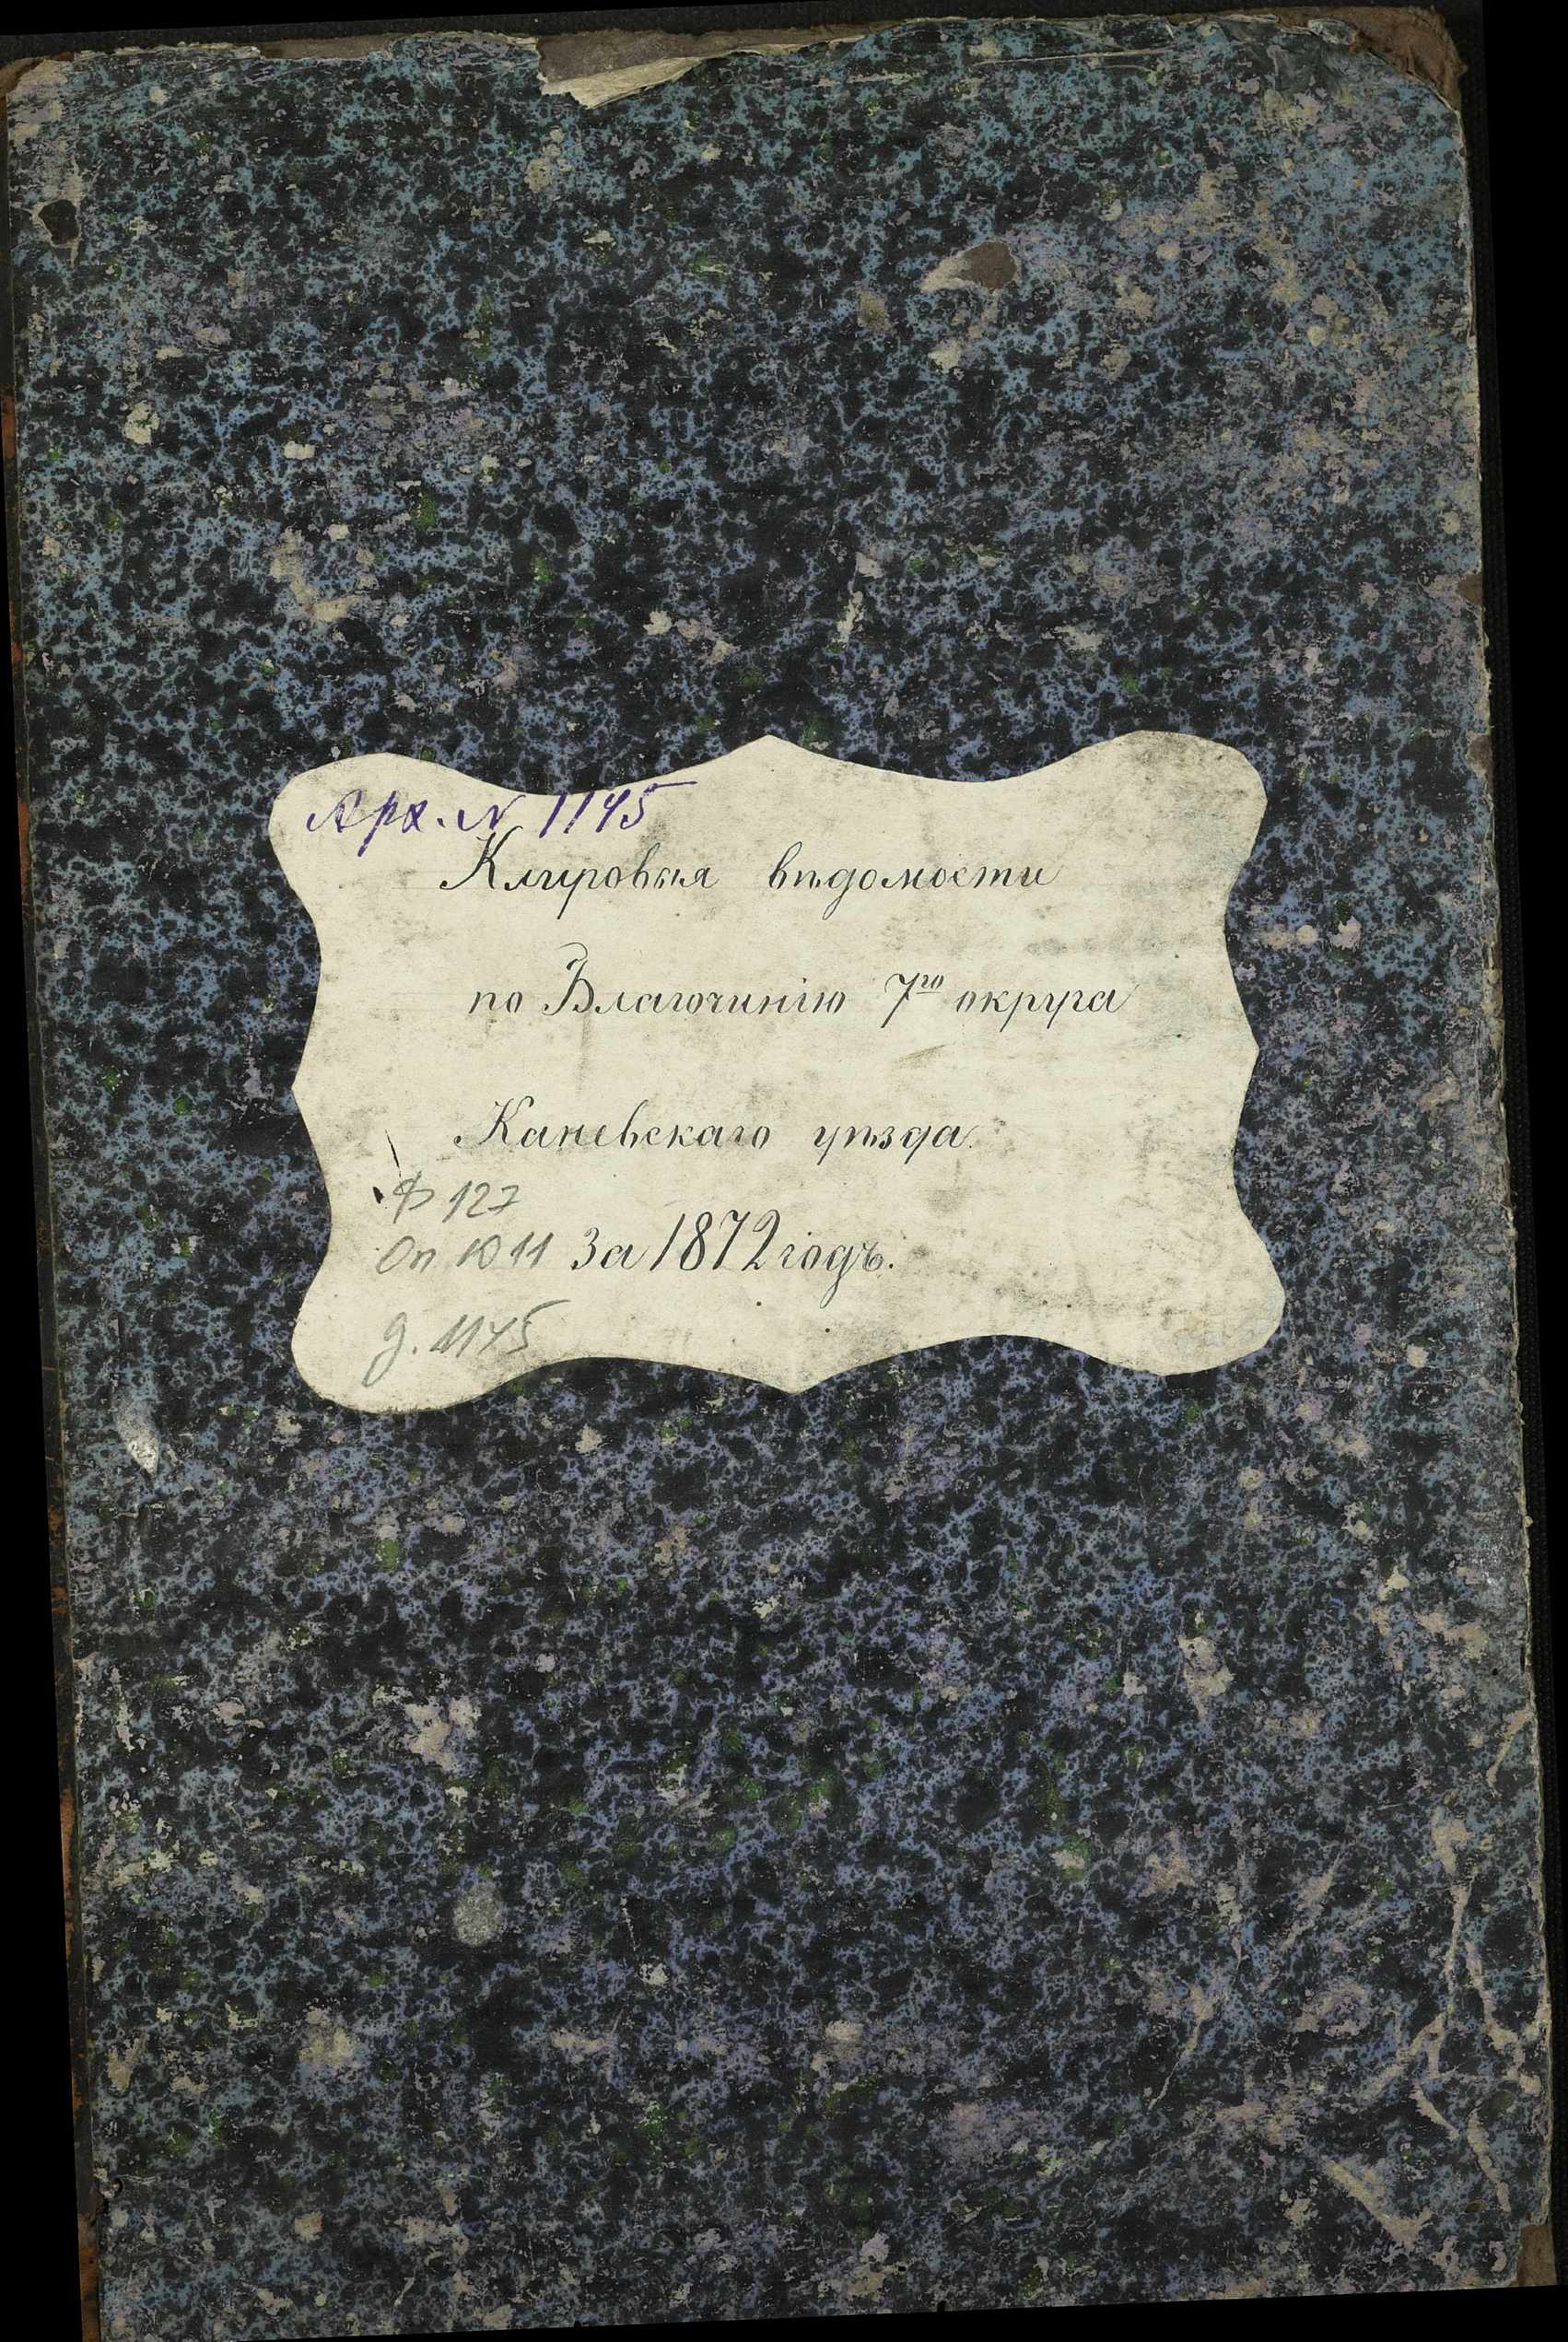 Арх. N 1145
Клировыя вѣдомости
по Благочинію 7го округа
Каневскаго уѣзда.
Ф 127
Оп 1011 За 1872 годъ.
д. 1145